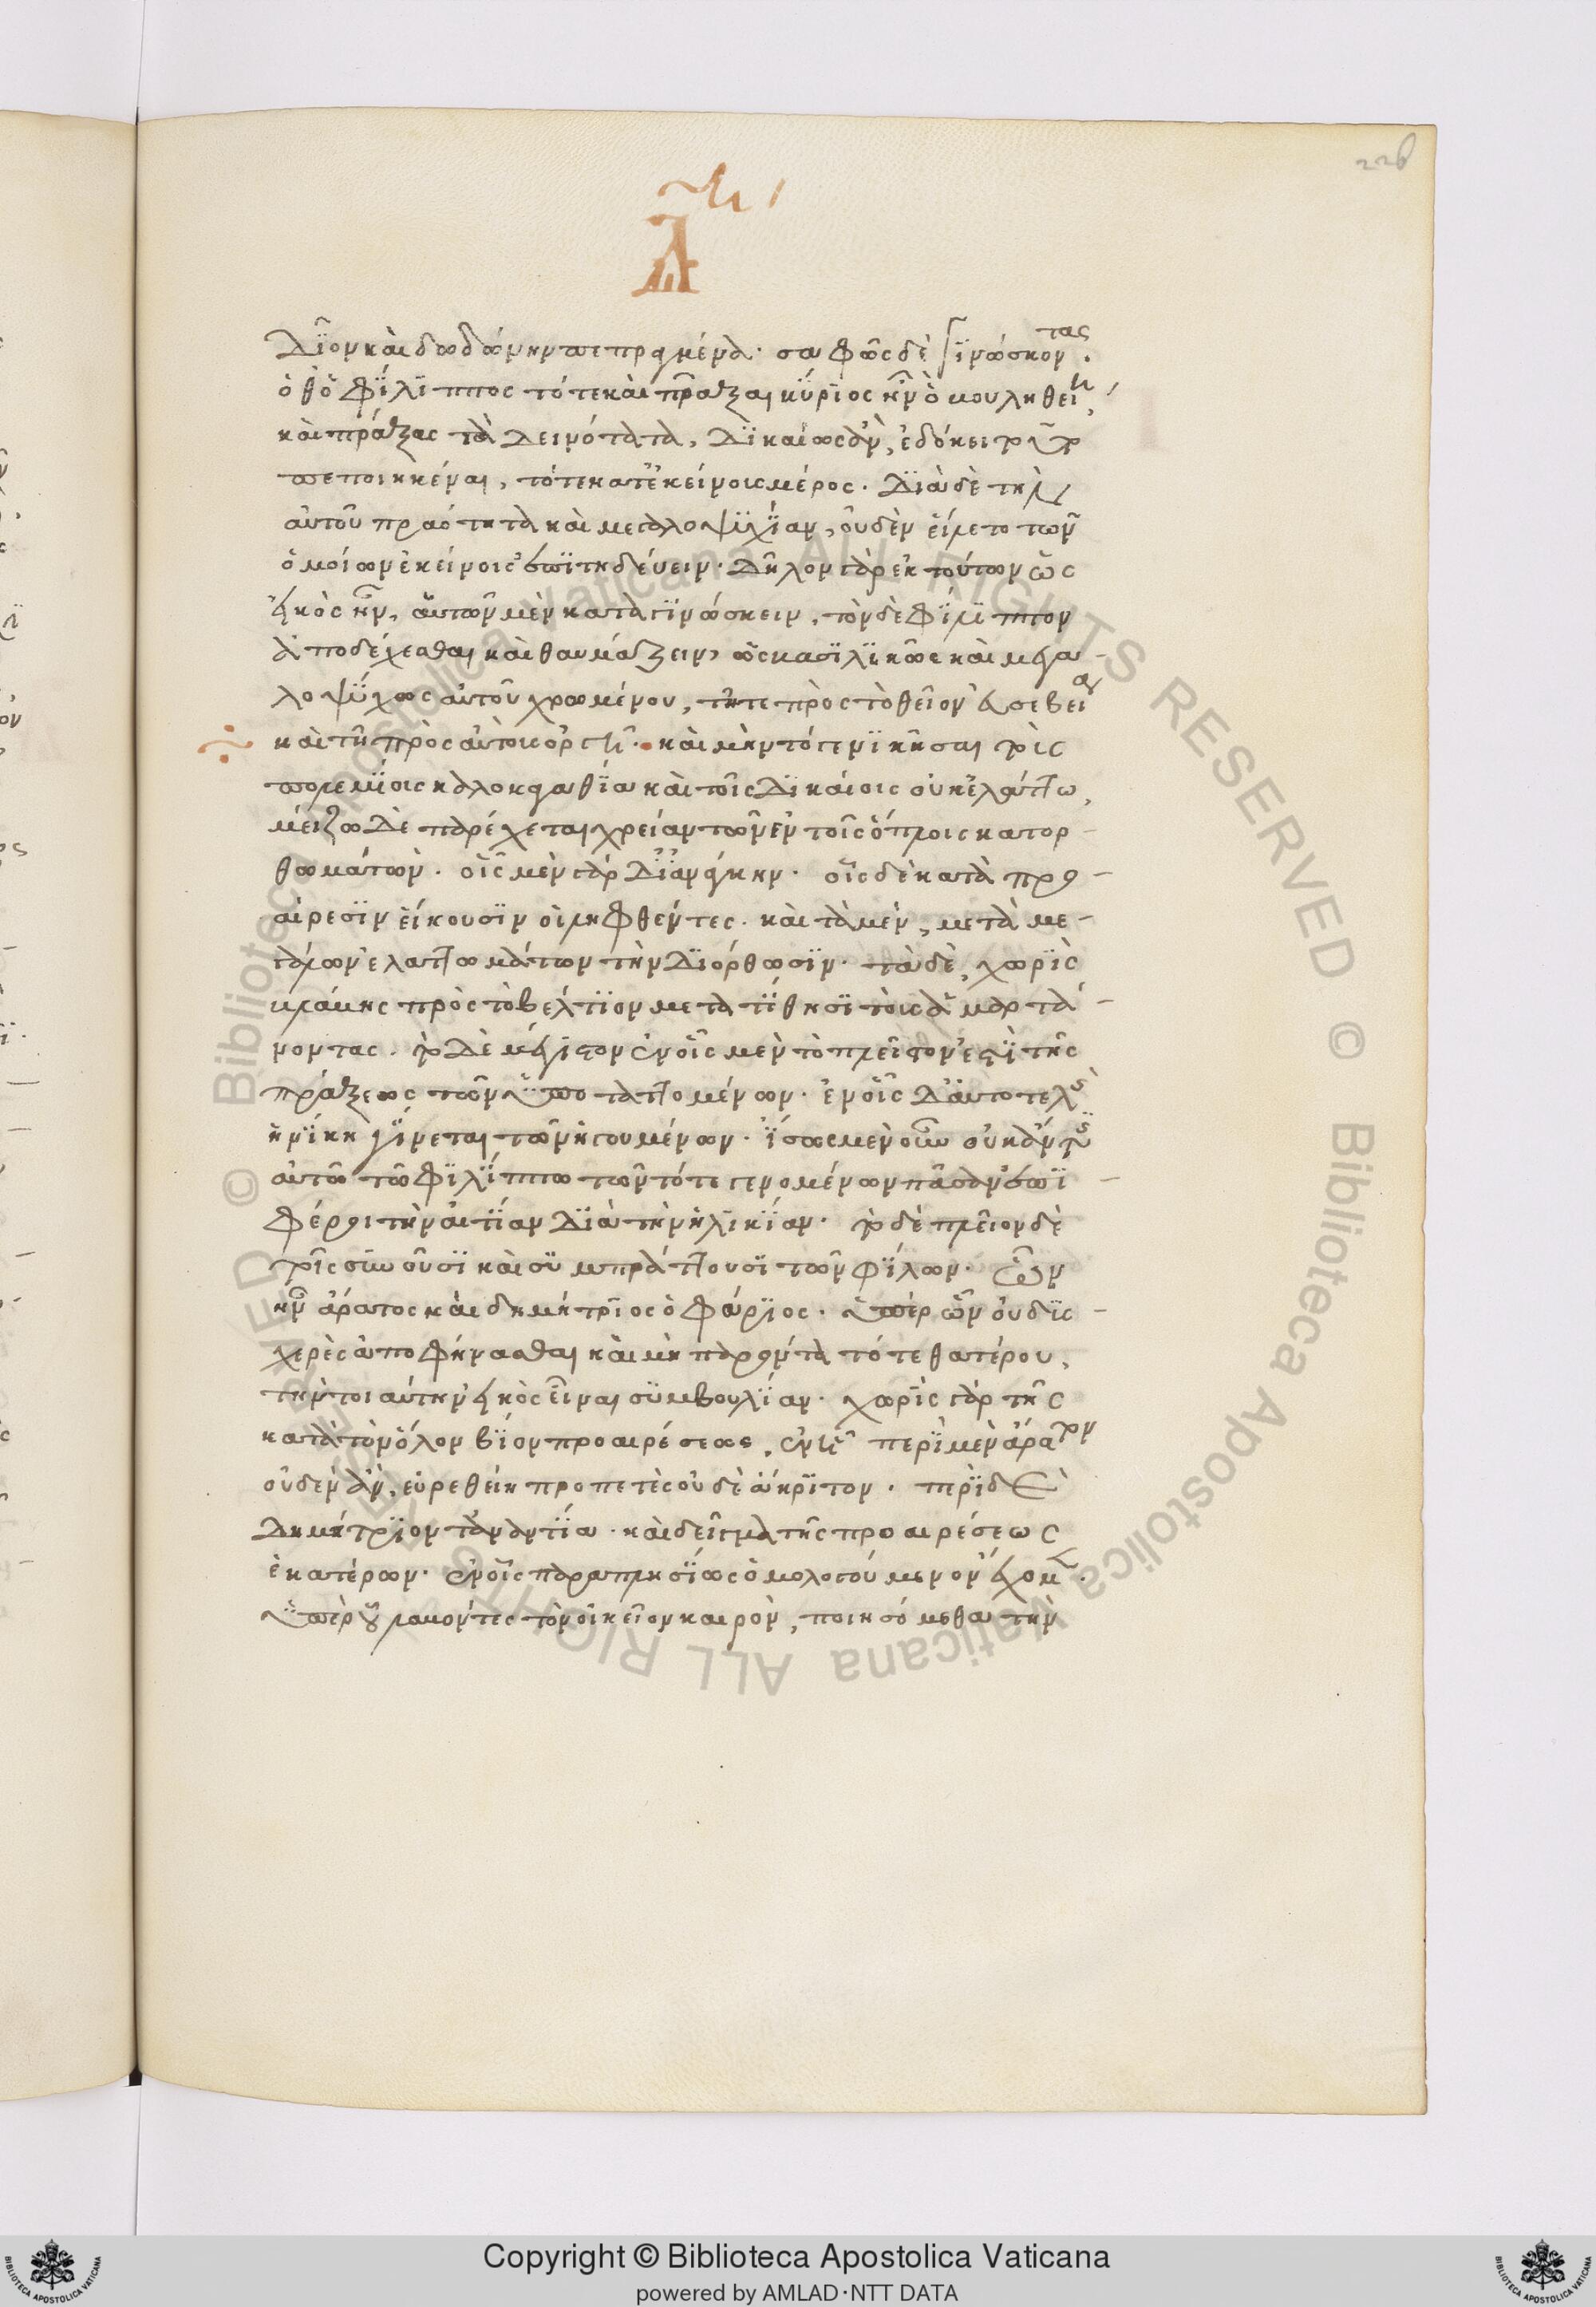 228
Δῖον καὶ δωδώνην πεπραγμένα. σαφῶς δὲ γϊνώσκοντας
ὅθ' ὁ Φίλϊππος τότε καὶ πρᾶξαι κύριος ἦν ὃ βουληθείη,
καὶ πράξας τὰ δεινότατα, δϊκαίως ἂν, ἐδόκει τοῦτο
πεποιηκέναι, τό τε κατ' ἐκείνοις μέρος. Δϊὰ δὲ τὴν
αὐτοῦ πραότητα καὶ μεγαλοψϋχΐαν, οὐδὲν εἵλετο τῶν
ὁμοίων ἐκείνοις ἐπϊτηδεύειν. Δῆλον γὰρ ἐκ τούτων ὡς
εἰκὸς ἦν, αὑτῶν μὲν καταγϊνώσκειν, τὸν δὲ Φίλϊππον
ἀποδέχεσθαι καὶ θαυμάζειν, ὡς βασϊλϊκῶς καὶ μεγα-
λοψύχως αὐτοῦ χρωμένου, τῆ τε πρὸς τὸ θεῖον εὐσεβείαι
καὶ τῆ πρὸς αὐτοὺς ὀργῆ. καὶ μὴν τό γε νϊκῆσαι τοὺς
πολεμΐους καλοκαγαθΐα καὶ τοῖς Δϊκαίοις οὐκ ἐλάττω,
μείζω Δὲ παρέχεται χρείαν τῶν ἐν τοῖς ὅπλοις κατορ-
θωμάτων. οἷς μὲν γὰρ Δϊ' ἀνάγκην. οἷς δὲ κατὰ προ-
αίρεσϊν εἴκουσϊν οἱ ληφθέντες. καὶ τὰ μὲν, μετὰ με-
γάλων ἐλαττωμάτων τὴν Δϊόρθωσϊν. τὰ δὲ, χωρὶς
βλάβης πρὸς τὸ βέλτϊον μετατΐθησϊ τοὺς ἁμαρτά-
νοντας. τὸ Δὲ μέγϊστον ἐν οἷς μὲν τὸ πλεῖστον ἐστϊ τῆς
πράξεως τῶν ὑποταττομένων. ἐν οἷς Δ' αὐτοτελὴς
ἡ νΐκη γΐνεται τῶν ἡγουμένων. ΐσως μὲν οὖν οὐκ ἄν τϊς
αὐτῶ τῶ Φϊλΐππω τῶν τότε γενομένων πᾶσαν ἐπϊ-
φέροι τὴν αἰτΐαν Δϊὰ τὴν ἡλϊκΐαν. τὸ δὲ πλεῖον δὲ
τοῖς συνοῦσϊ καὶ συμπράττουσϊ τῶν φΐλων. ὧν
ἦν ἄρατος καὶ δημήτρϊος ὁ Φάρϊος. ὑπὲρ ὧν οὐ δυσ-
χερὲς ἀποφήνασθαι καὶ μὴ παρόντα τό τε θατέρου,
τὴν τοιαύτην εἰκὸς εἶναι συμβουλΐαν. χωρὶς γὰρ τῆς
κατὰ τὸν ὅλον βΐον προαιρέσεως, ἐν ἧ περὶ μὲν ἄρατον
οὐδὲν ἂν, εὑρεθείη προπετὲς οὐδὲ ἄκρϊτον. περὶ δὲ
Δημήτρϊον τἀναντΐα. καὶ δεῖγμα τῆς προαιρέσεως
ἑκατέρων. ἐν οἷς παραπλησΐως ὁμολογούμενον ἔχομεν.
ὑπὲρ οὗ λαβόντες τὸν οἰκεῖον καιρὸν, ποιησόμεθα τὴν
Copyright © Biblioteca Apostolica Vaticana
powered by AMLAD·NTT DATA